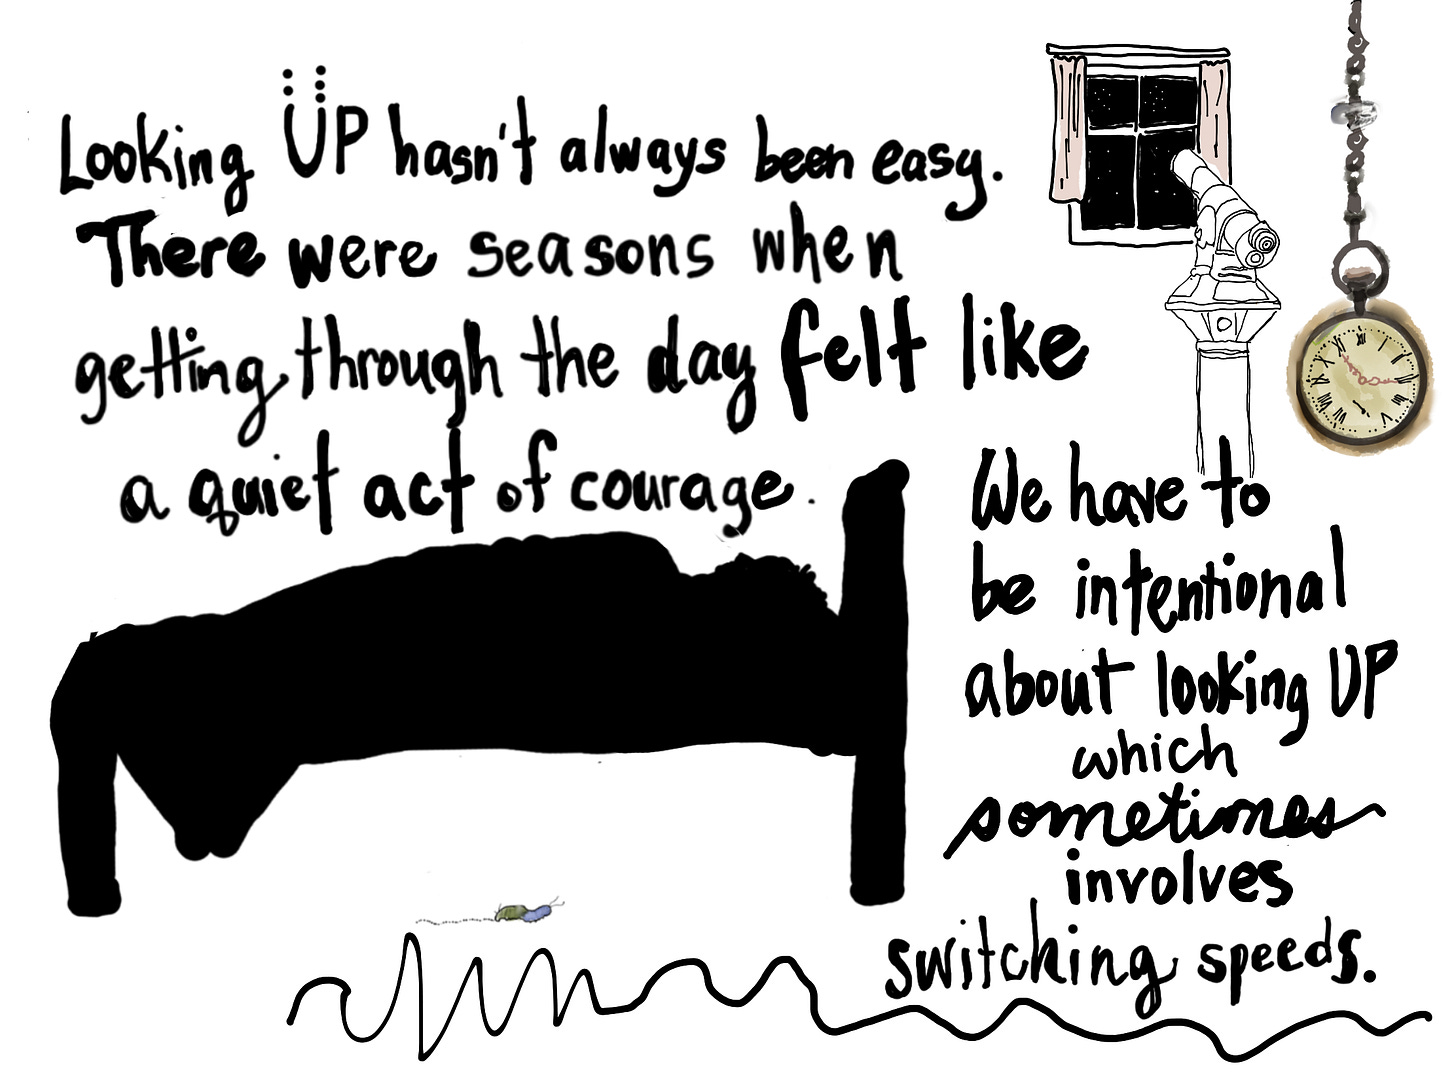 Looking UP hasn't always been easy.
There were seasons when
getting through the day felt like
a quiet act of courage.
We have to
be intentional
about looking UP
which
sometimes
involves
switching speeds.